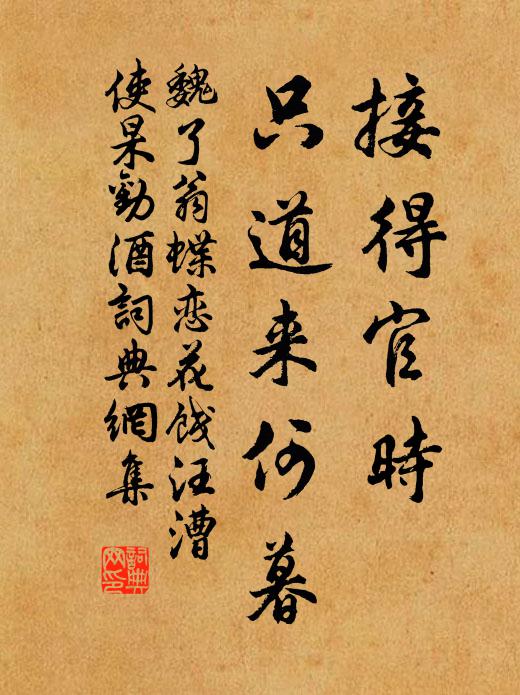 接得官时
只道来何暮
魏了翁蝶恋花饯汪漕
使杲勸酒詞典網集
詞典网印